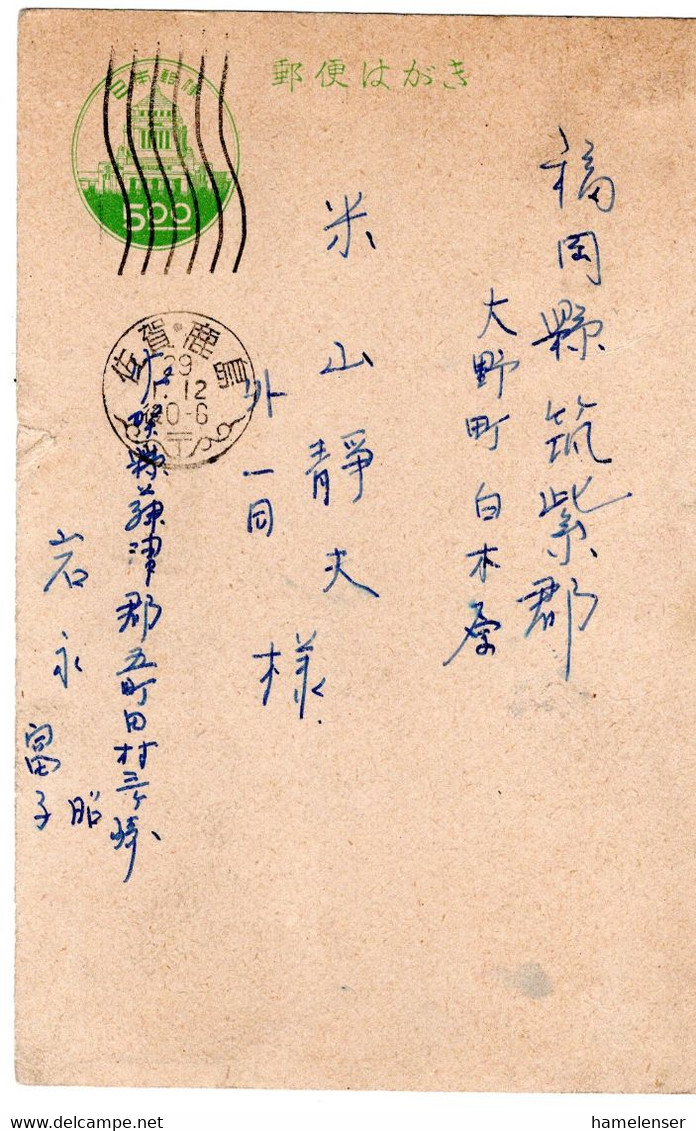 郵便はがき
日本郵便
5.00
福岡縣筑紫郡
大野町白木原
米山靜夫様
外一同
佐賀・鹿島
29
1.12
後0-6
〒
佐賀縣藤津郡五町田村三ヶ崎
岩永昭
富子
hamelenser